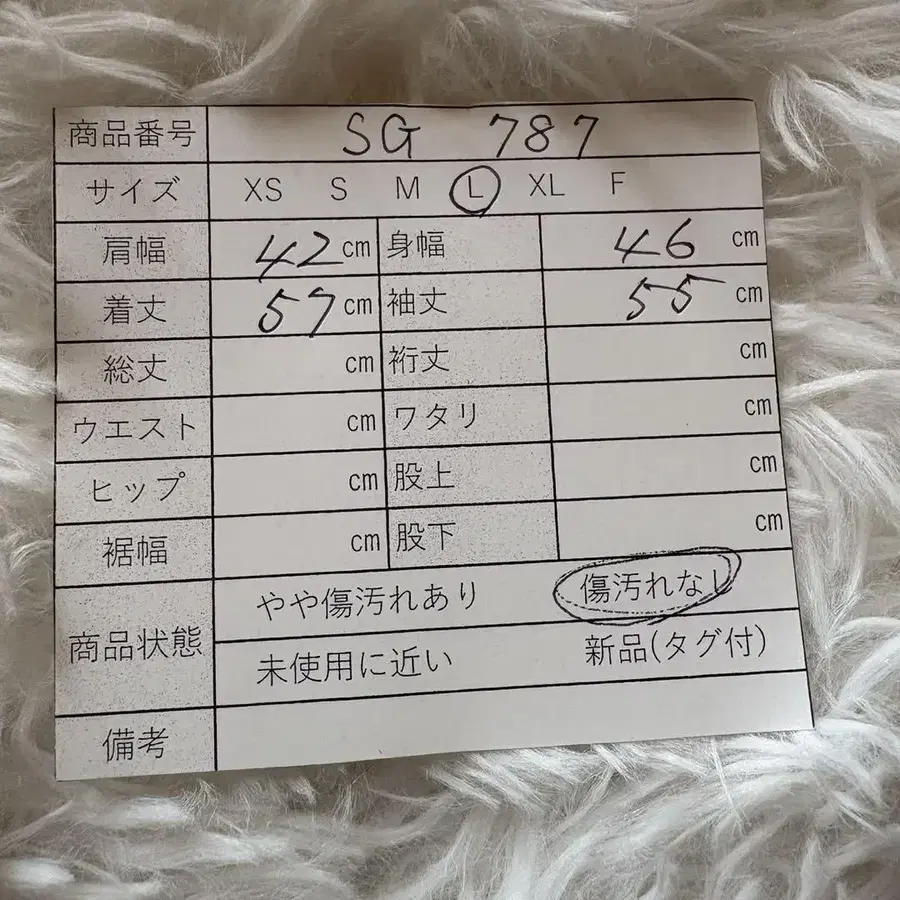 商品番号 SG 787
サイズ XS S M L XL F
肩幅 42cm 身幅 46 cm
着丈 57cm 袖丈 55 cm
総丈 cm 裄丈 cm
ウエスト cm ワタリ cm
ヒップ cm 股上 cm
裾幅 cm 股下 cm
商品状態 やや傷汚れあり 傷汚れなし
未使用に近い 新品(タグ付)
備考